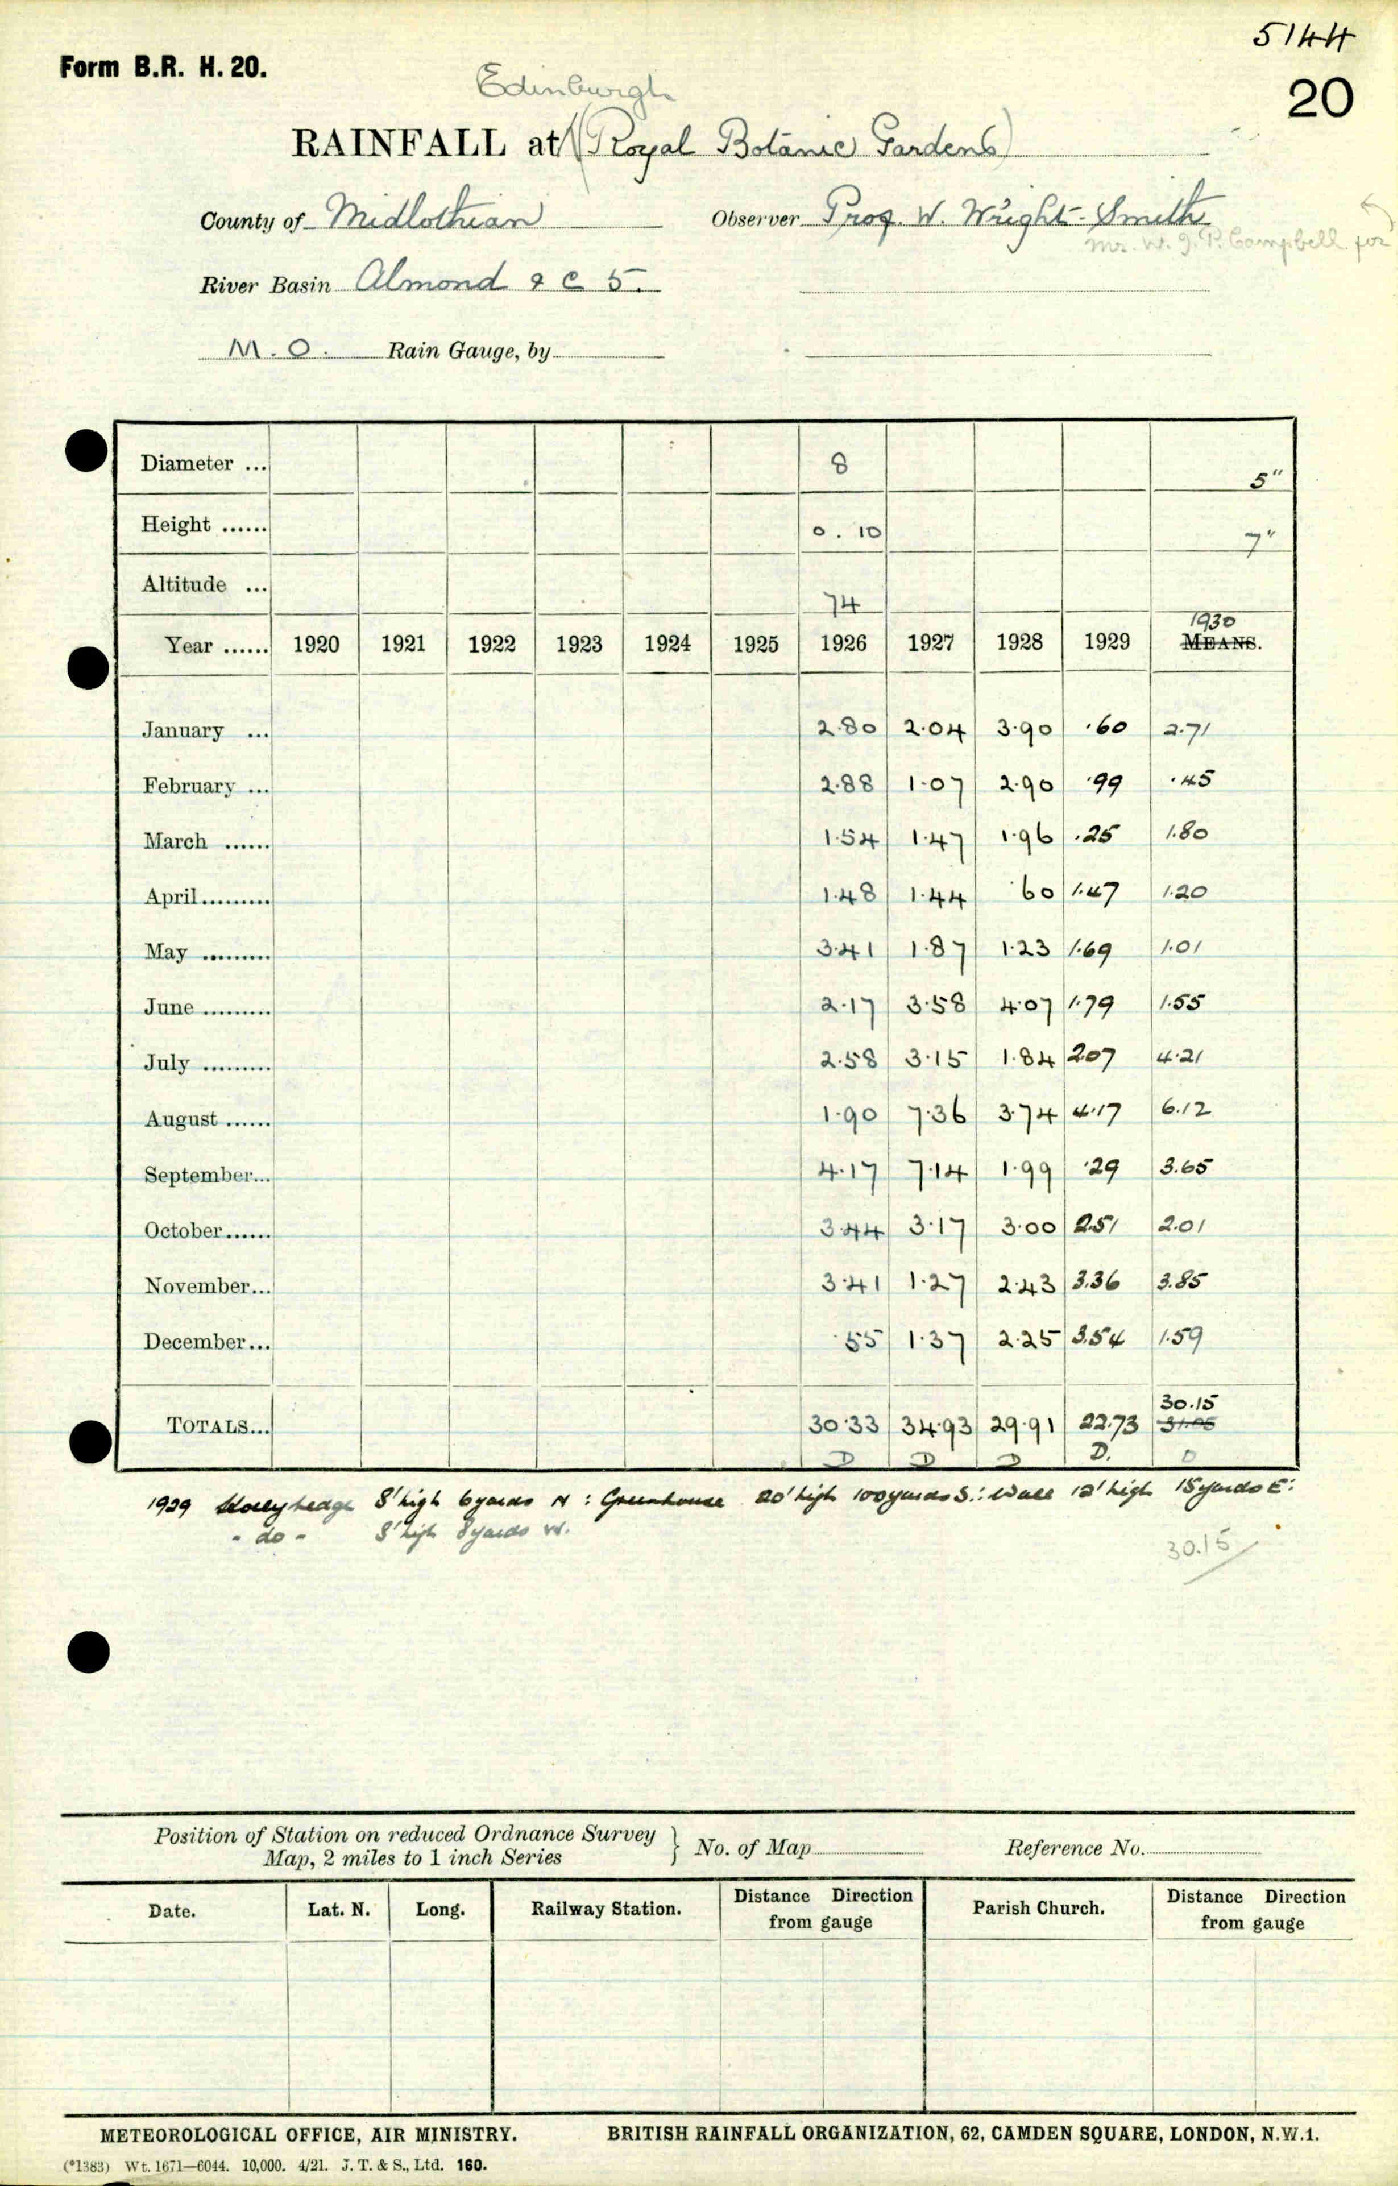 5144
Form B.R. H. 20.
20
Edinburgh
RAINFALL at (Royal Botanic Gardens)
County of Midlothian Observer Prof. W. Wright-Smith
Mr. W. J. P. Campbell for
River Basin Almond & C 5.
M.O. Rain Gauge, by
Diameter ... 8 5"
Height ...... 0.10 7"
Altitude ... 74
1930
Year ...... 1920 1921 1922 1923 1924 1925 1926 1927 1928 1929 MEANS.
January ... 2.80 2.04 3.90 .60 2.71
February ... 2.88 1.07 2.90 .99 .45
March ...... 1.54 1.47 1.96 .25 1.80
April......... 1.48 1.44 .60 1.47 1.20
May ......... 3.41 1.87 1.23 1.69 1.01
June ......... 2.17 3.58 4.07 1.79 1.55
July ......... 2.58 3.15 1.84 2.07 4.21
August ...... 1.90 7.36 3.74 4.17 6.12
September... 4.17 7.14 1.99 .29 3.65
October...... 3.44 3.17 3.00 2.51 2.01
November... 3.41 1.27 2.43 3.36 3.85
December... .55 1.37 2.25 3.54 1.59
30.15
TOTALS... 30.33 34.93 29.91 22.73
D D D D. D
1929 Holly hedge 8' high 6 yards N : Greenhouse 20' high 100 yards S.: Wall 12' high 15 yards E:
- do - 8' high 8 yards W.
30.15
Position of Station on reduced Ordnance Survey
Map, 2 miles to 1 inch Series } No. of Map Reference No.
Date. Lat. N. Long. Railway Station. Distance Direction from gauge Parish Church. Distance Direction from gauge
METEOROLOGICAL OFFICE, AIR MINISTRY. BRITISH RAINFALL ORGANIZATION, 62, CAMDEN SQUARE, LONDON, N.W.1.
(*1383) Wt. 1671—6044. 10,000. 4/21. J. T. & S., Ltd. 160.